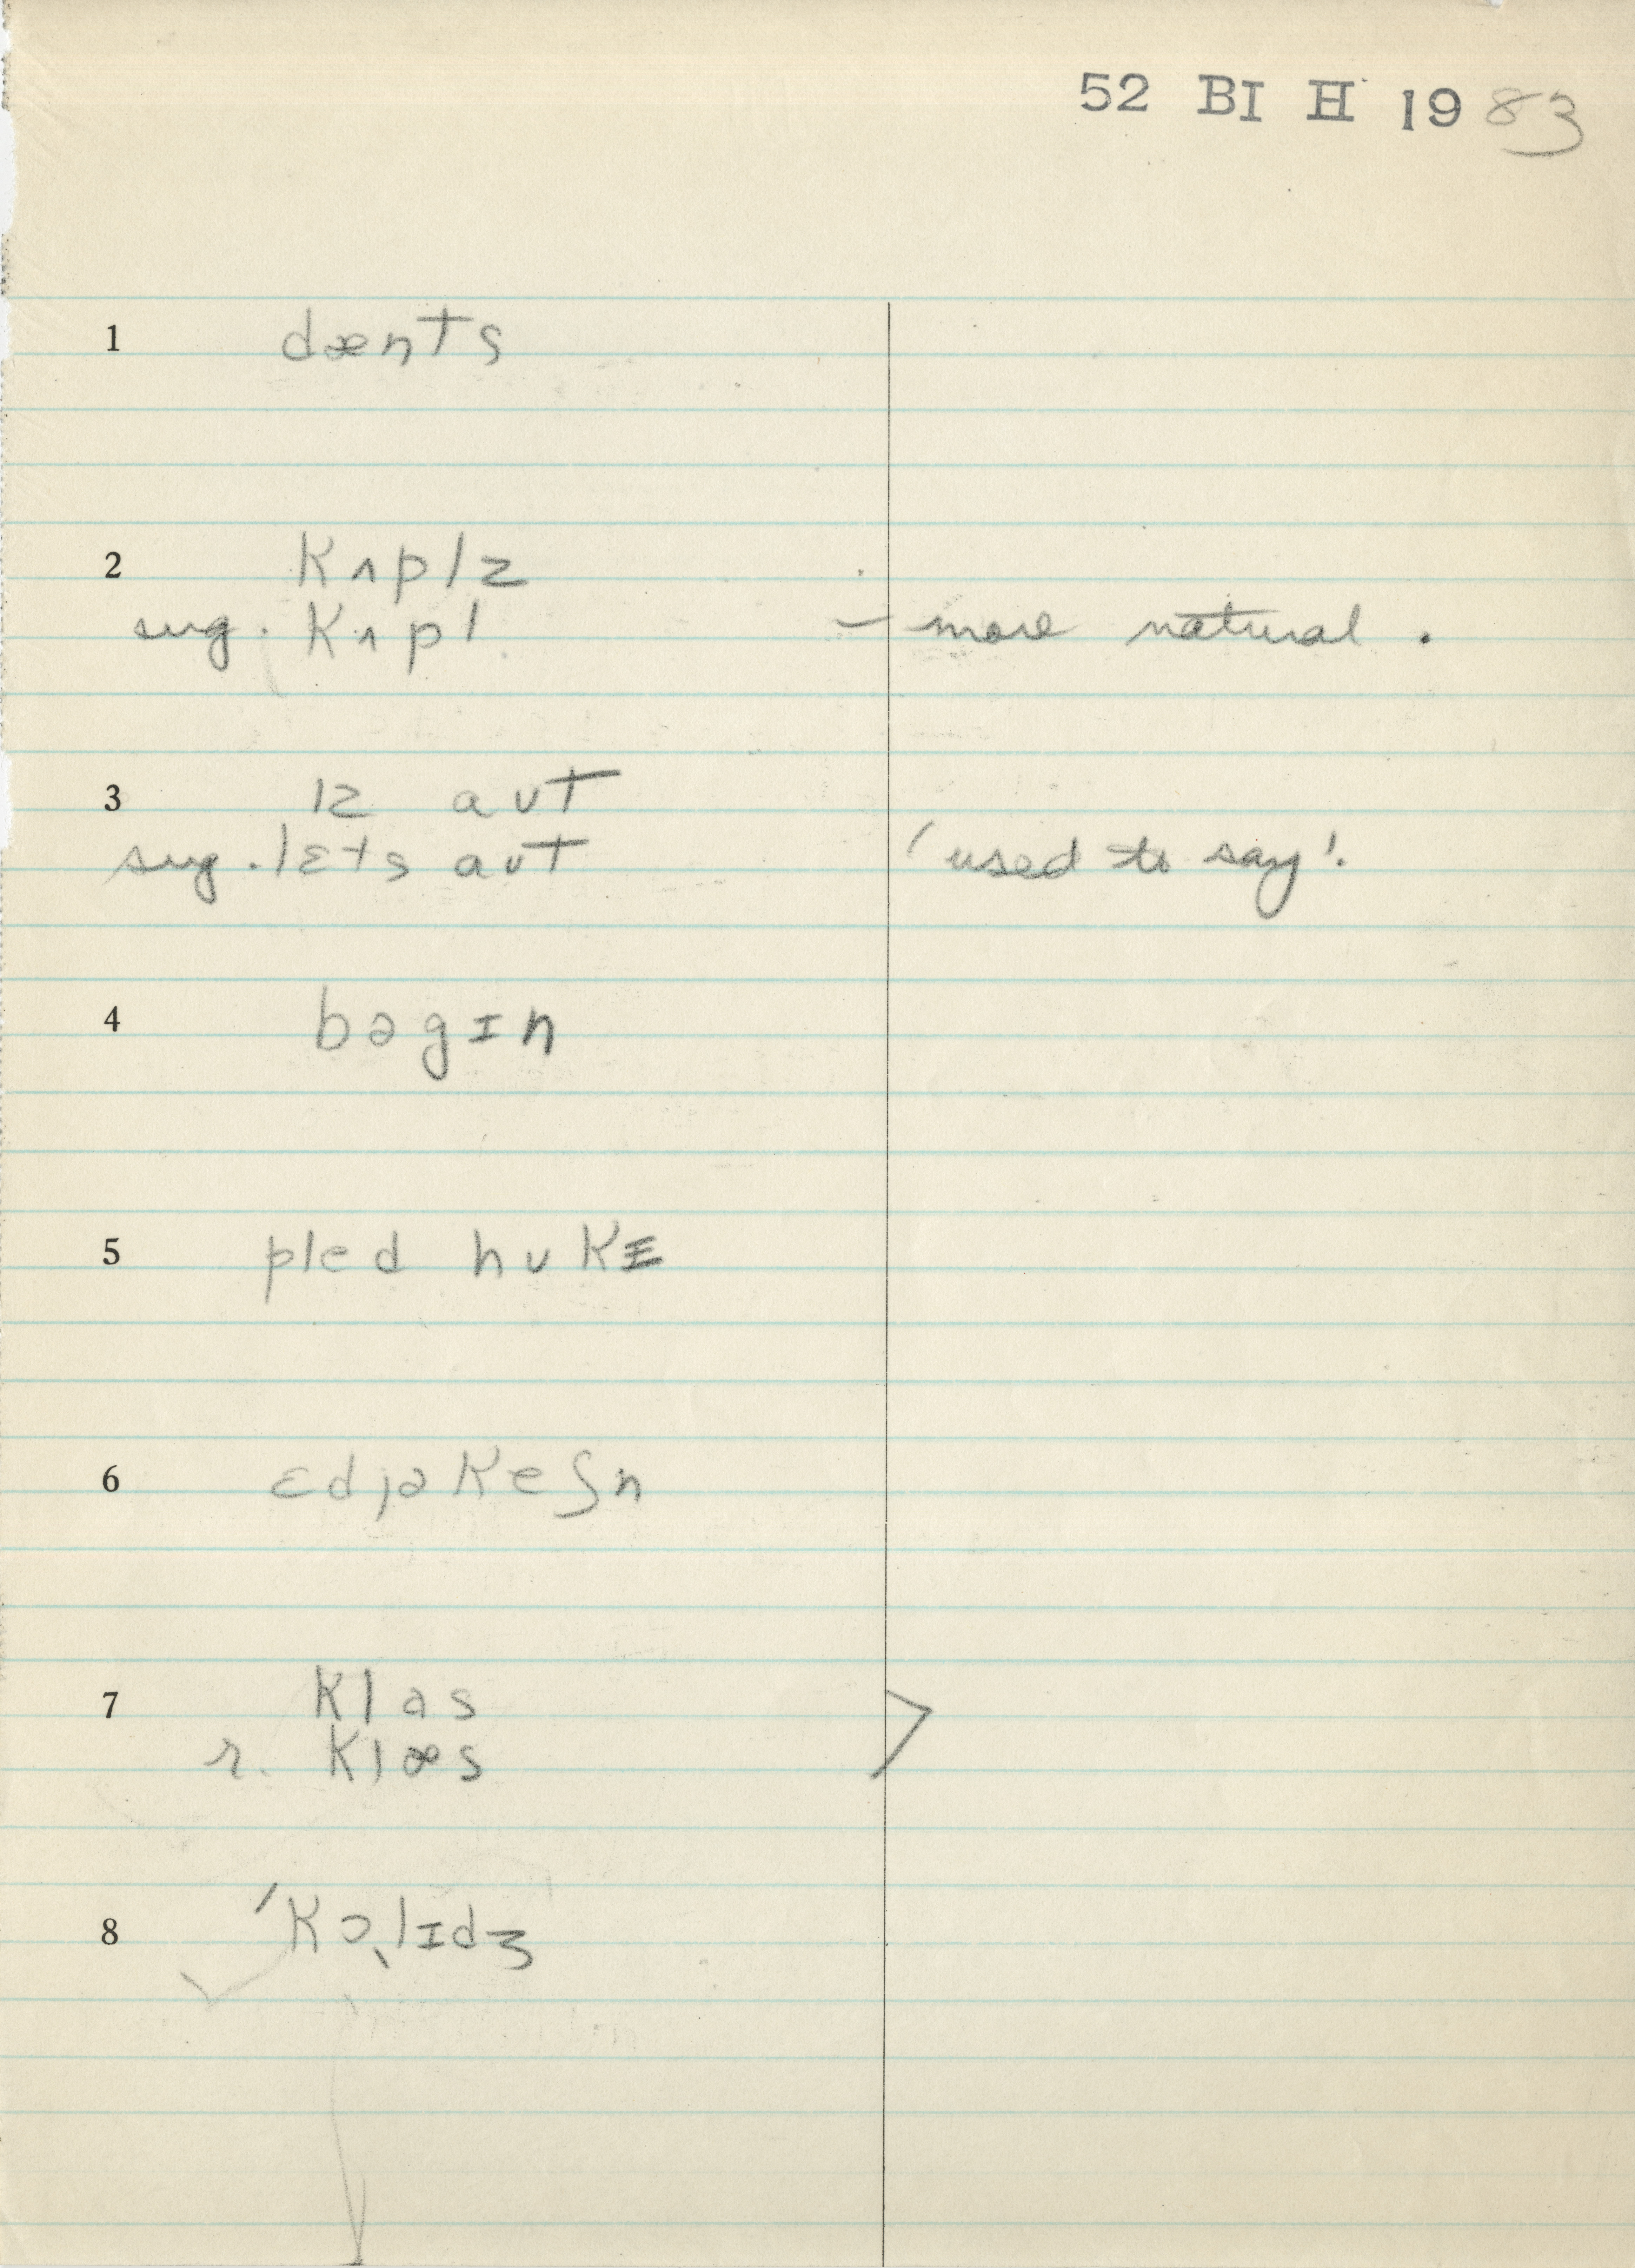 52 BI H 1983
1 dænts
2 kʌplz
sug. kʌpl — more natural.
3 ɪz aʊt
sug. lɛts aʊt 'used to say'.
4 bəgɪn
5 pled hʊkɪ
6 ɛdjəkeʃn
7 klas
r. klæs >
8 'kɔ˛lɪdʒ